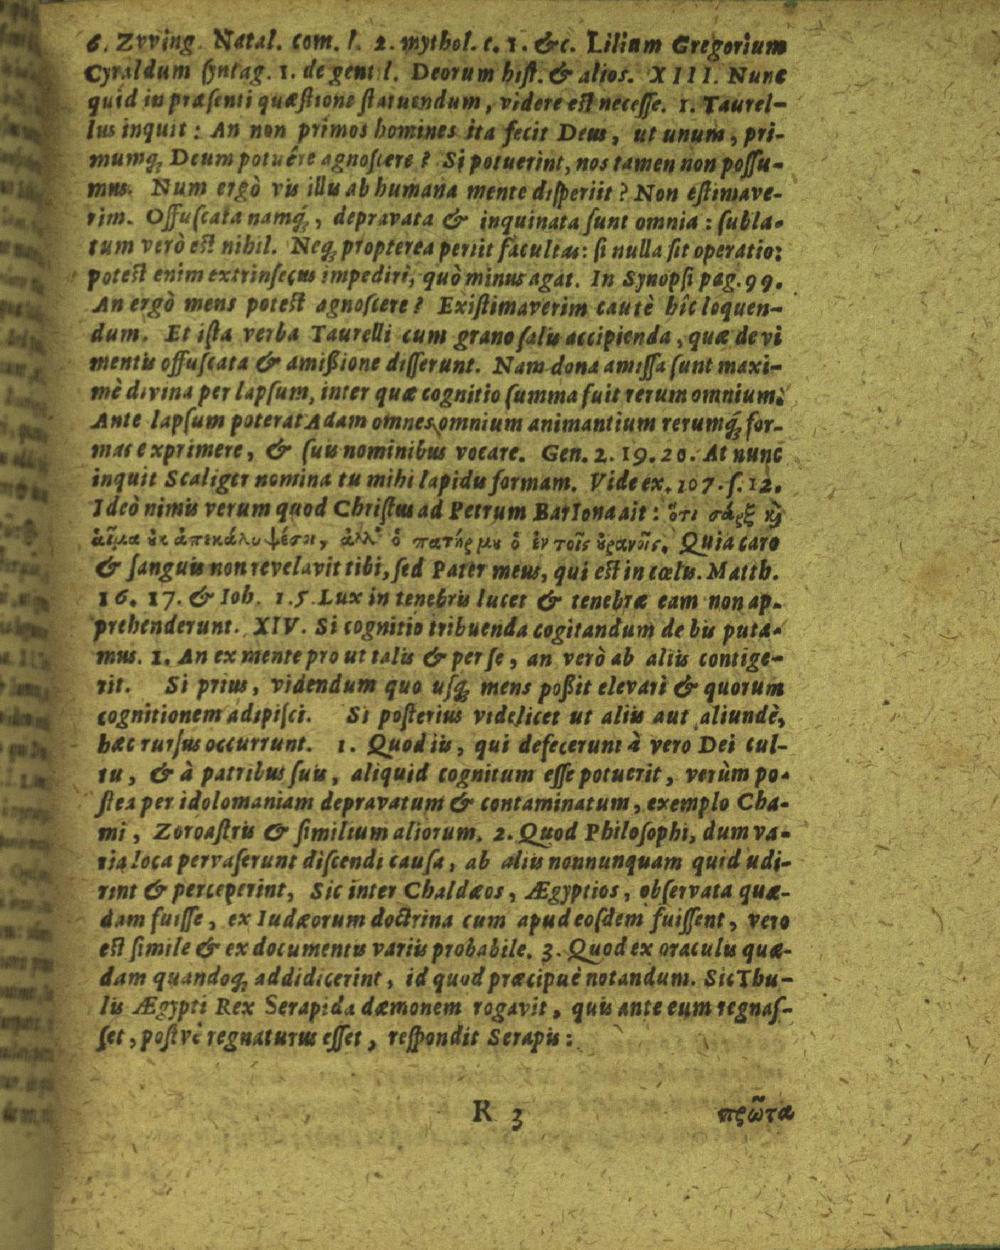 6. Zvving. Natal. com. l. 2. mythol. c. 1. &c. Lilium Gregorium
Cyraldum ſyntag. 1. de gentil. Deorum hiſt. & alios. XIII. Nunc
quid in præſenti quæſtione ſtatuendum, videre eſt neceſſe. 1. Taurel-
lus inquit: An non primos homines ita fecit Deus, ut unum, pri-
mumq́; Deum potuêre agnoſcere? Si potuerint, nos tamen non poſſu-
mus. Num ergò vis illis ab humana mente diſperiit? Non eſtimave-
rim. Offuſcata namq́;, depravata & inquinata ſunt omnia: ſubla-
tum verò eſt nihil. Neq; propterea periit facultas: ſi nulla ſit operatio:
poteſt enim extrinſecus impediri, quò minus agat. In Synopſi pag. 99.
An ergò mens poteſt agnoſcere? Exiſtimaverim cautè hîc loquen-
dum. Et iſta verba Taurelli cum grano ſalis accipienda, quæ de vi
mentis offuſcata & amißione differunt. Nam dona amiſſa ſunt maxi-
mè divina per lapſum, inter quæ cognitio ſumma fuit rerum omnium.
Ante lapſum poterat Adam omnes omnium animantium rerumq́; for-
mas exprimere, & ſuis nominibus vocare. Gen. 2. 19. 20. At nunc
inquit Scaliger nomina tu mihi lapidis formam. Vide ex. 107. ſ. 12.
Ideò nimis verum quod Chriſtus ad Petrum BarIona ait: ὅτι σάρξ ϗ̀
αἷμα ὐκ ἀπεκάλυψέσοι, ἀλλ' ὁ πατήρ μυ ὁ ἐν τοῖς ὐρανοῖς. Quia caro
& ſanguis non revelavit tibi, ſed Pater meus, qui eſt in cœlis. Matth.
16. 17. & Ioh. 1. 5. Lux in tenebris lucet & tenebræ eam non ap-
prehenderunt. XIV. Si cognitio tribuenda cogitandum de his puta-
mus. 1. An ex mente pro ut talis & per ſe, an verò ab aliis contige-
rit. Si prius, videndum quo uſq; mens poßit elevari & quorum
cognitionem adipiſci. Si poſterius videlicet ut aliis aut aliundè,
hæc rurſus occurrunt. 1. Quod iis, qui defecerunt à vero Dei cul-
tu, & à patribus ſuis, aliquid cognitum eſſe potuerit, verùm po-
ſtea per idolomaniam depravatum & contaminatum, exemplo Cha-
mi, Zoroaſtris & ſimilium aliorum. 2. Quod Philoſophi, dum va-
ria loca pervaſerunt diſcendi cauſa, ab aliis nonnunquam quid udi-
rint & perceperint, Sic inter Chaldæos, Ægyptios, obſervata quæ-
dam fuiſſe, ex Iudæorum doctrina cum apud eoſdem fuiſſent, vero
eſt ſimile & ex documentis variis probabile. 3. Quod ex oraculis quæ-
dam quandoq; addidicerint, id quod præcipuè notandum. Sic Thu-
lis Ægypti Rex Serapida dæmonem rogavit, quis ante eum regnaſ-
ſet, poſt vè regnaturus eſſet, reſpondit Serapis:
R 3 πρῶτα